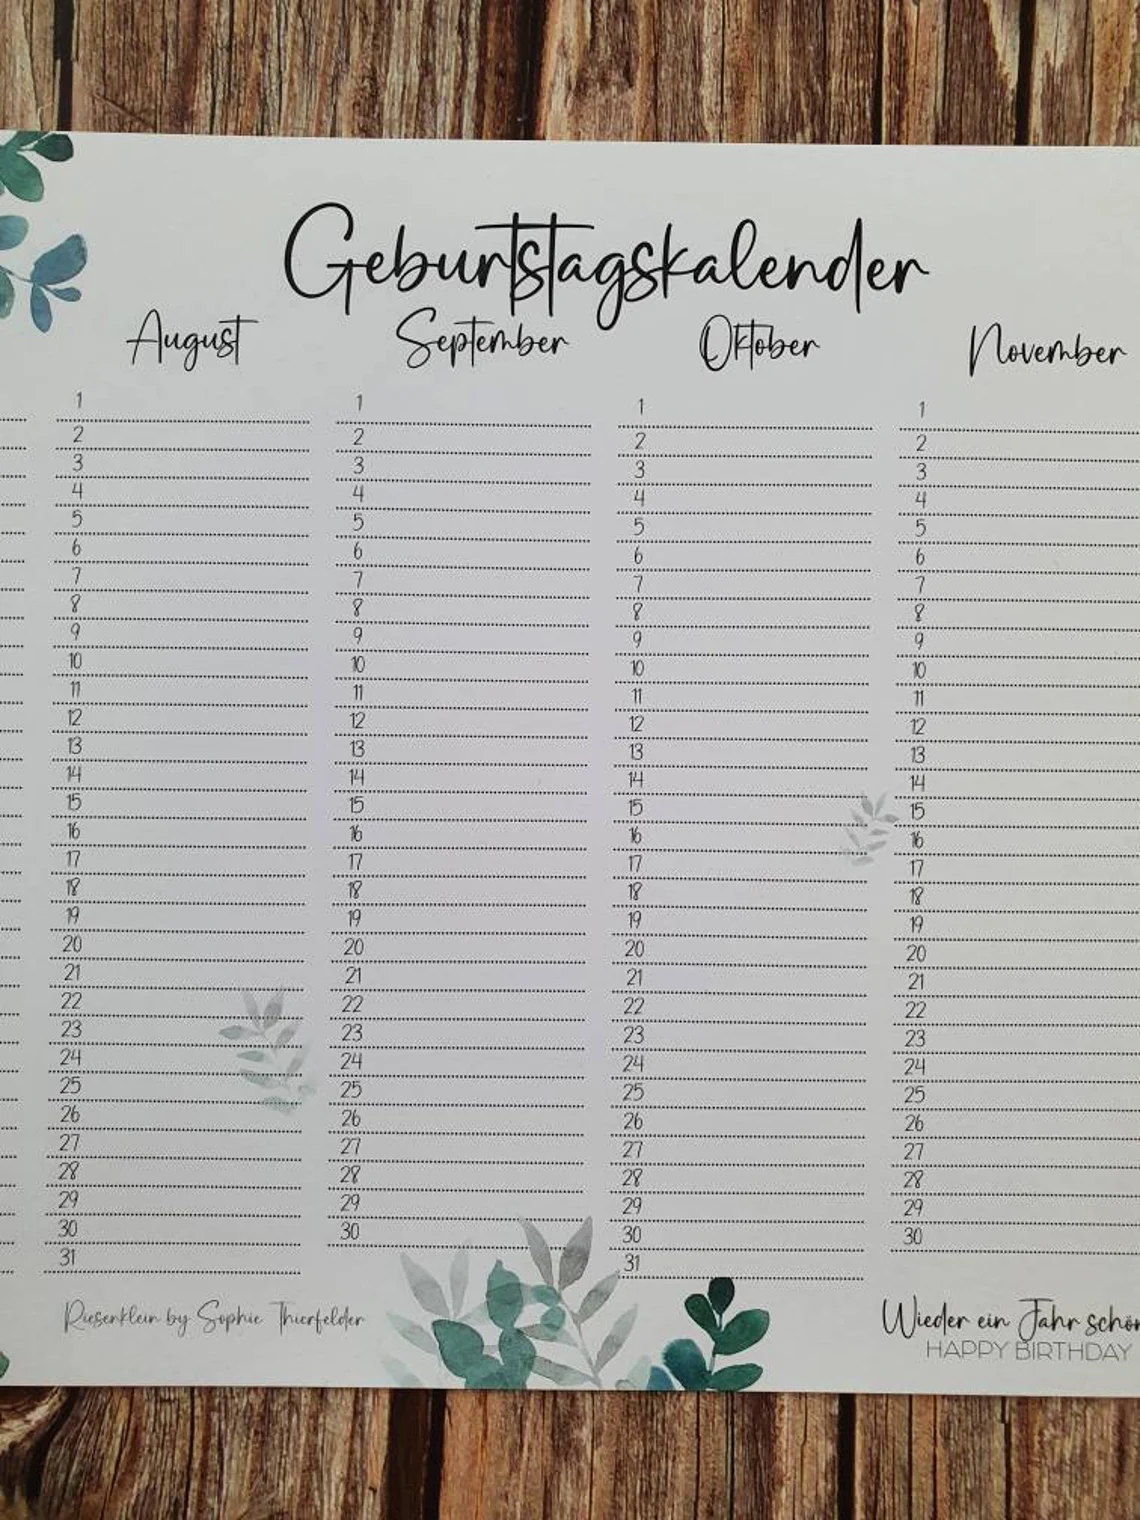 Geburtstagskalender
August September Oktober November
1 1 1 1
2 2 2 2
3 3 3 3
4 4 4 4
5 5 5 5
6 6 6 6
7 7 7 7
8 8 8 8
9 9 9 9
10 10 10 10
11 11 11 11
12 12 12 12
13 13 13 13
14 14 14 14
15 15 15 15
16 16 16 16
17 17 17 17
18 18 18 18
19 19 19 19
20 20 20 20
21 21 21 21
22 22 22 22
23 23 23 23
24 24 24 24
25 25 25 25
26 26 26 26
27 27 27 27
28 28 28 28
29 29 29 29
30 30 30 30
31 31
Riesenklein by Sophie Thierfelder
Wieder ein Jahr schön
HAPPY BIRTHDAY